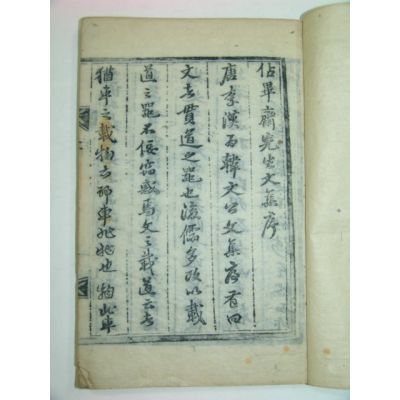 佔畢齋先生文集序
唐李漢爲韓文公文集序有曰
文者貫道之器也後儒多改以載
道之器不佞嘗惑焉文之載道云者
猶車之載物也車非物也物非車